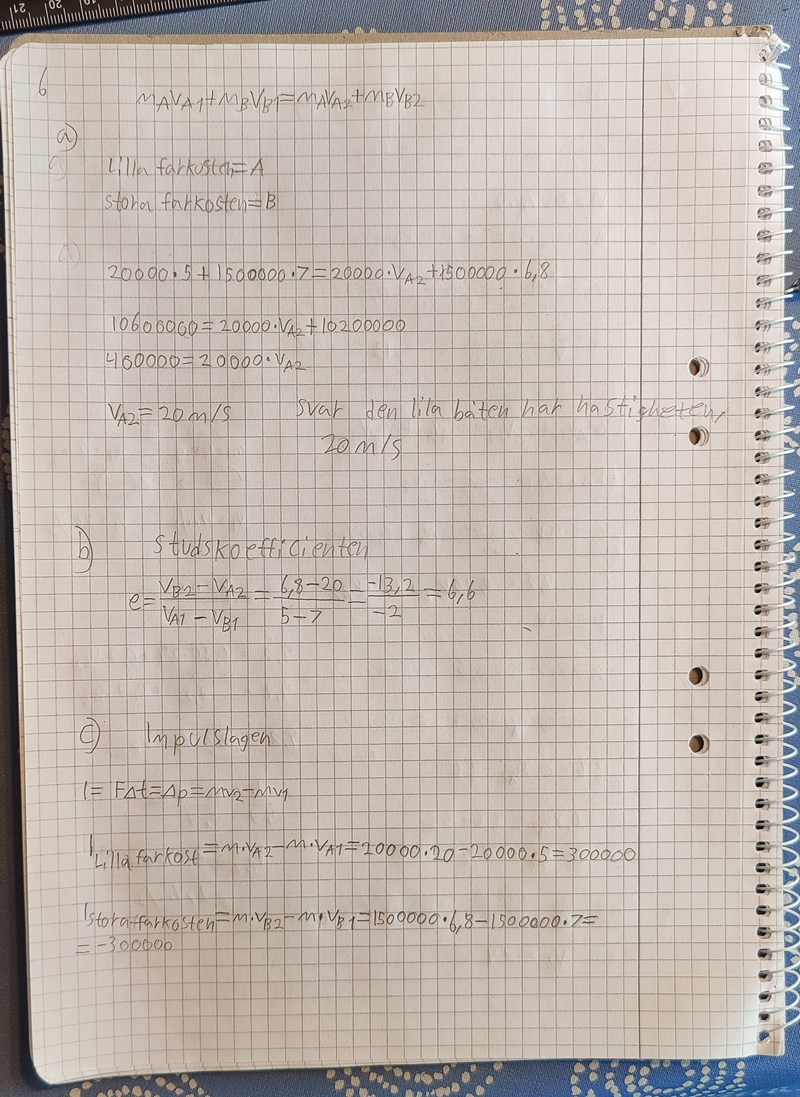 6
m_A v_A1 + m_B v_B1 = m_A v_A2 + m_B v_B2
a)
Lilla farkosten = A
stora farkosten = B
20000·5 + 1500000·7 = 20000·v_A2 + 1500000·6,8
10600000 = 20000·v_A2 + 10200000
400000 = 20000·v_A2
v_A2 = 20 m/s svar den lila båten har hastigheten,
20 m/s
b) Studskoefficienten
e = (v_B2 - v_A2)/(v_A1 - v_B1) = (6,8-20)/(5-7) = (-13,2)/(-2) = 6,6
c) Impulslagen
I = FΔt = Δp = mv_2 - mv_1
I_Lilla farkost = m·v_A2 - m·v_A1 = 20000·20 - 20000·5 = 300000
I_stora farkosten = m·v_B2 - m·v_B1 = 1500000·6,8 - 1500000·7 =
= -300000